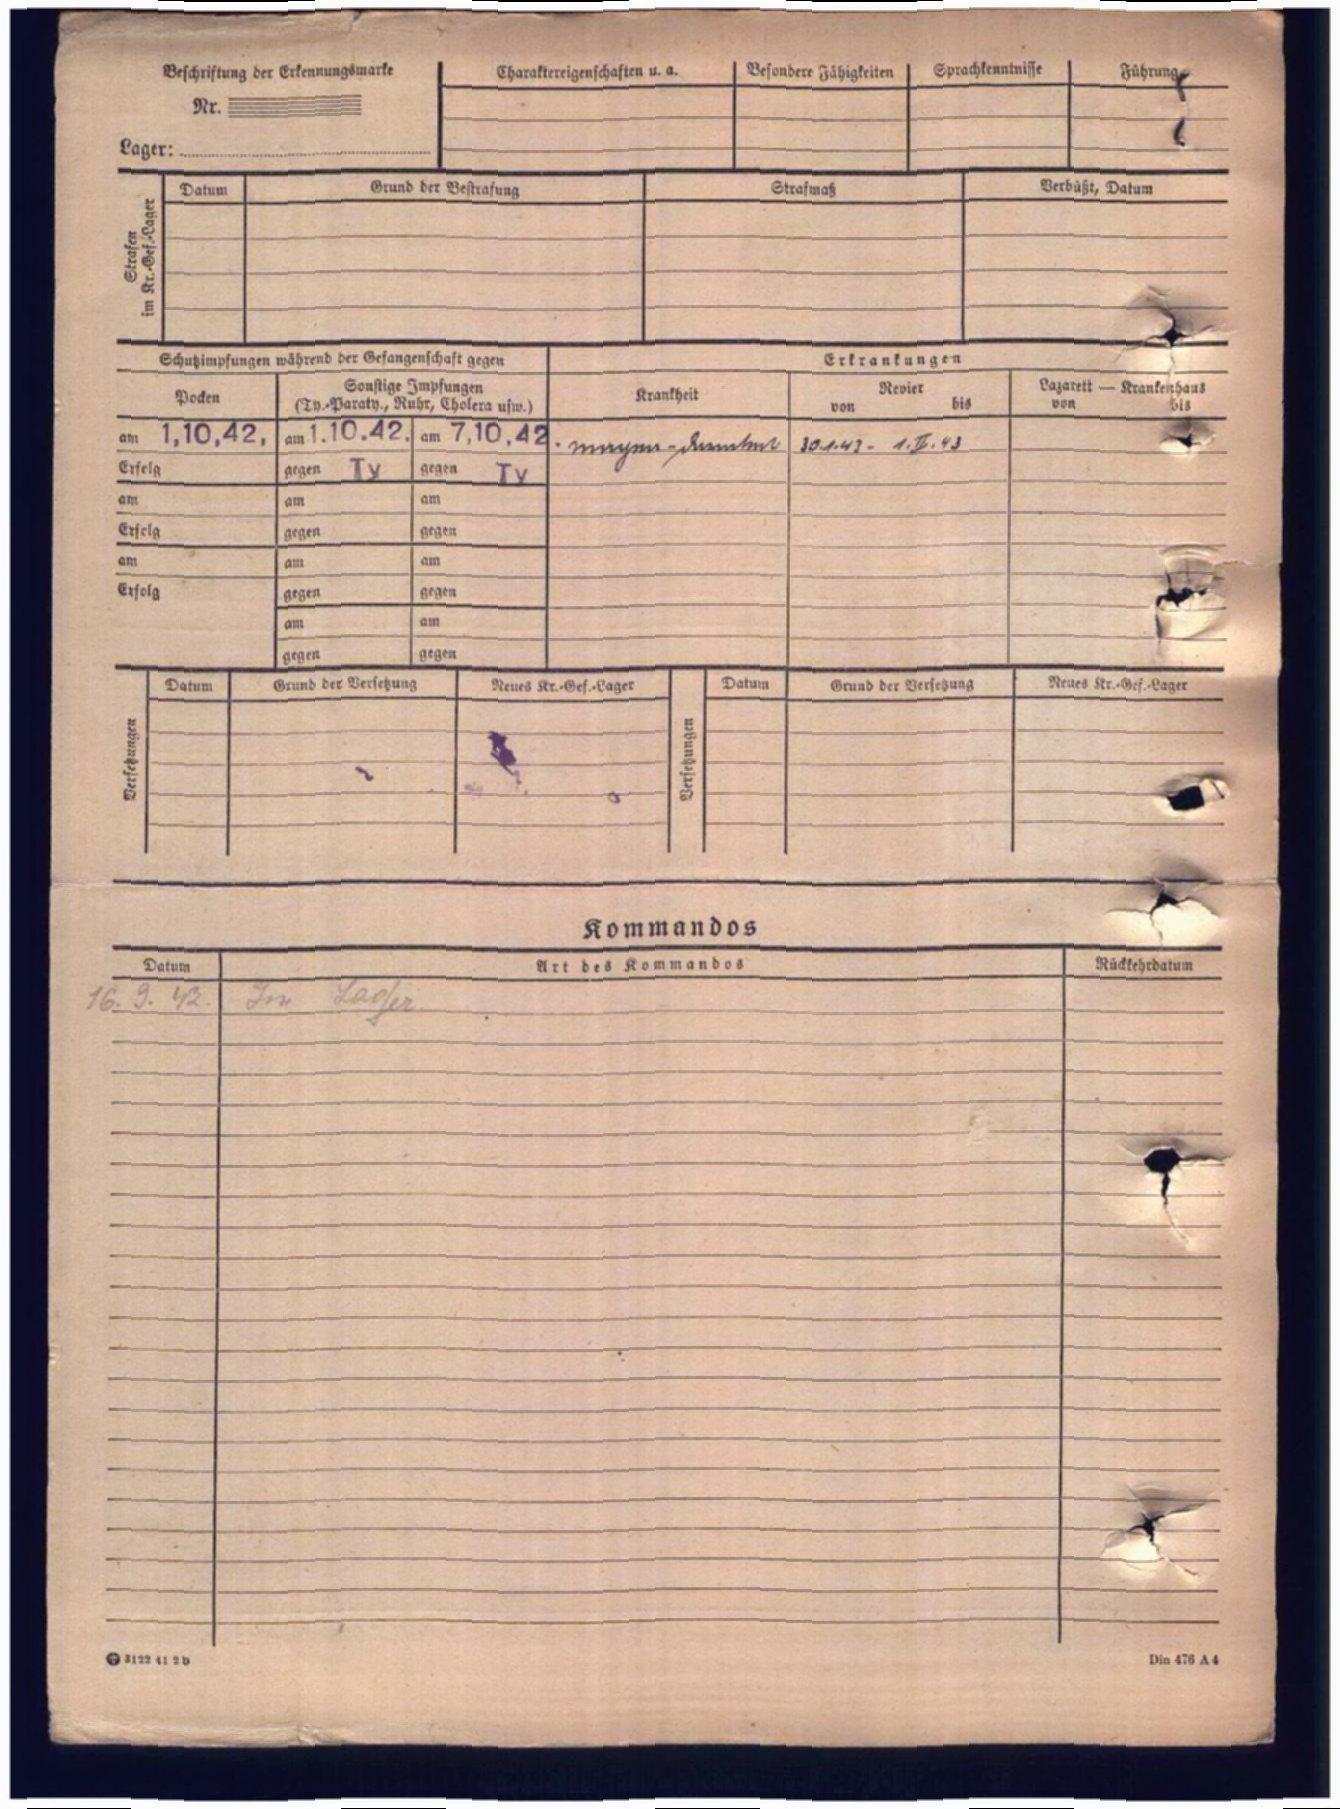 Beschriftung der Erkennungsmarke
Nr.
Lager:
Charaktereigenschaften u. a.
Besondere Fähigkeiten
Sprachkenntnisse
Führung
Strafen
im Kr.-Gef.-Lager
Datum
Grund der Bestrafung
Strafmaß
Verbüßt, Datum
Schutzimpfungen während der Gefangenschaft gegen
Erkrankungen
Pocken
Sonstige Impfungen
(Ty.-Paraty., Ruhr, Cholera usw.)
Krankheit
Revier
von bis
Lazarett — Krankenhaus
von bis
am 1,10,42, am 1.10.42. am 7,10,42
Magen- 30.1.43 - 1.II.43
Erfolg gegen Ty gegen Ty
am am am
Erfolg gegen gegen
am am am
Erfolg gegen gegen
am am
gegen gegen
Versetzungen
Datum
Grund der Versetzung
Neues Kr.-Gef.-Lager
Versetzungen
Datum
Grund der Versetzung
Neues Kr.-Gef.-Lager
Kommandos
Datum
Art des Kommandos
Rückkehrdatum
16. 9. 42. Im Lager
3122 41 2 D
Din 476 A 4